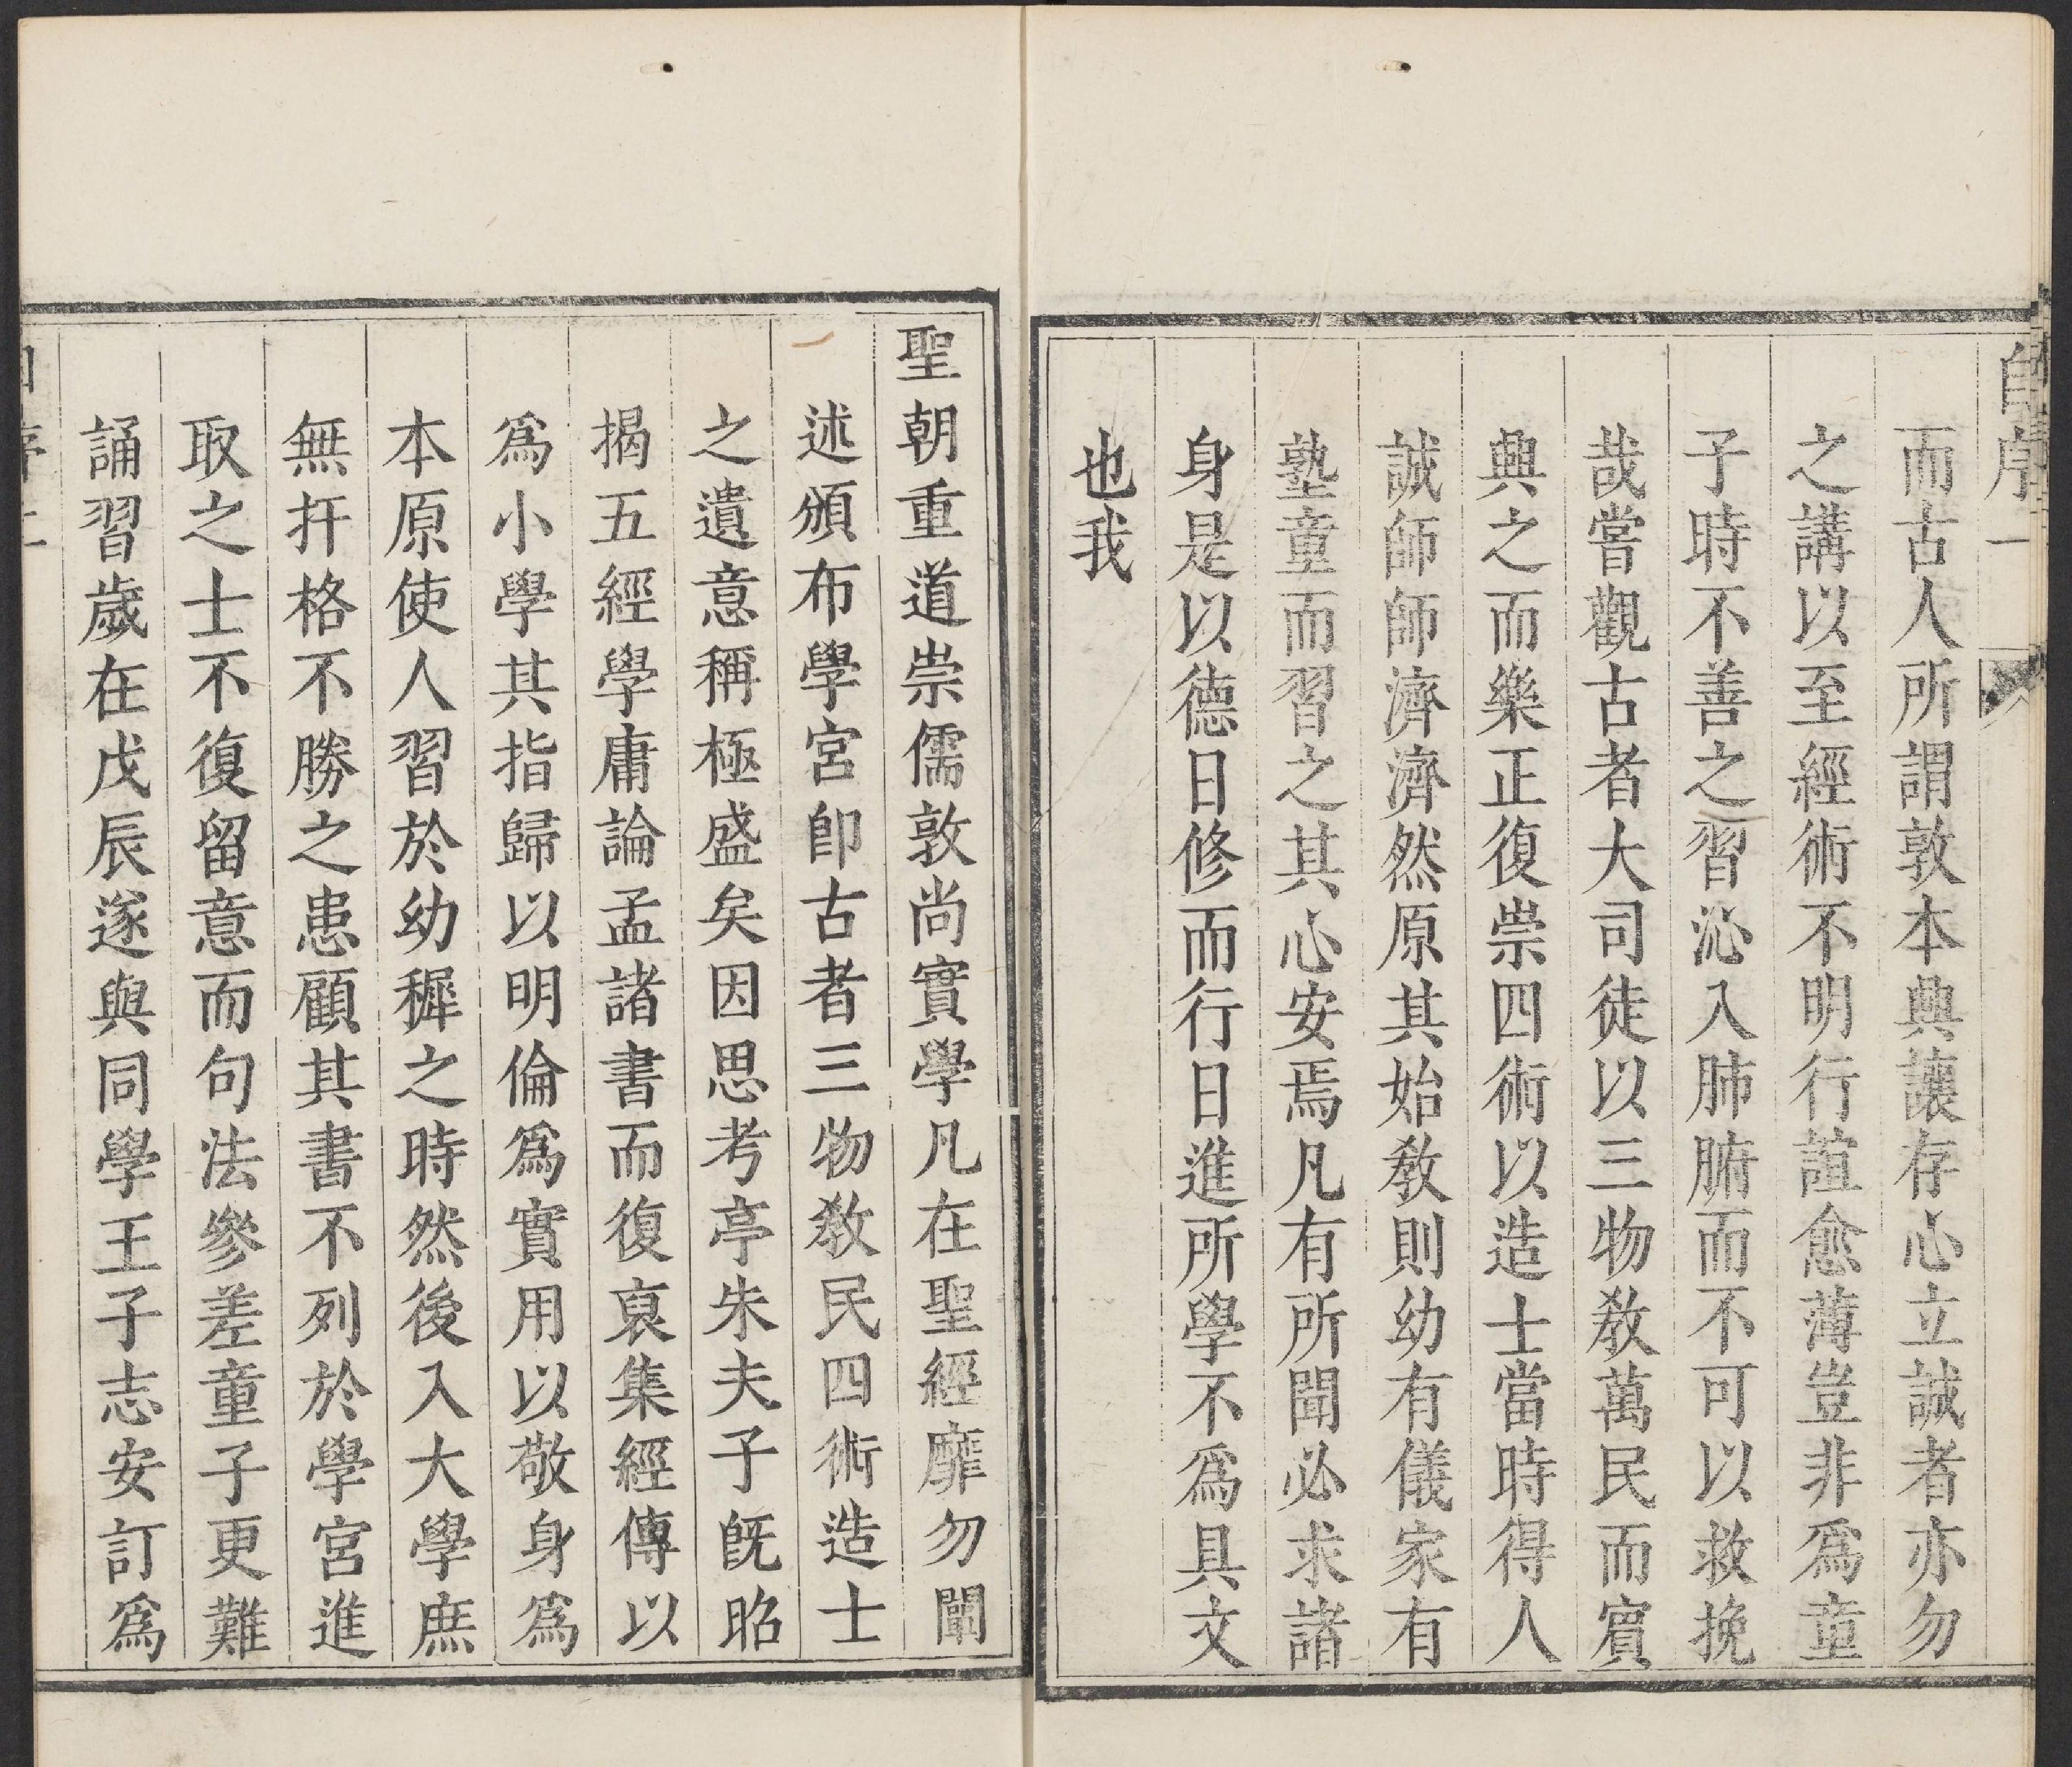 自序一
而古人所謂敦本典讓存心立誠者亦勿
之講以至經術不明行誼愈薄豈非爲童
子時不善之習沁入肺腑而不可以救挽
哉嘗觀古者大司徒以三物敎萬民而賓
興之而樂正復崇四術以造士當時得人
誠師師濟濟然原其始敎則幼有儀家有
塾童而習之其心安焉凡有所聞必求諸
身是以德日修而行日進所學不爲具文
也我
聖朝重道崇儒敦尚實學凡在聖經靡勿闡
述頒布學宮卽古者三物敎民四術造士
之遺意稱極盛矣因思考亭朱夫子旣昭
揭五經學庸論孟諸書而復裒集經傳以
爲小學其指歸以明倫爲實用以敬身爲
本原使人習於幼穉之時然後入大學庶
無扞格不勝之患顧其書不列於學宮進
取之士不復留意而句法參差童子更難
誦習歲在戊辰遂與同學王子志安訂爲